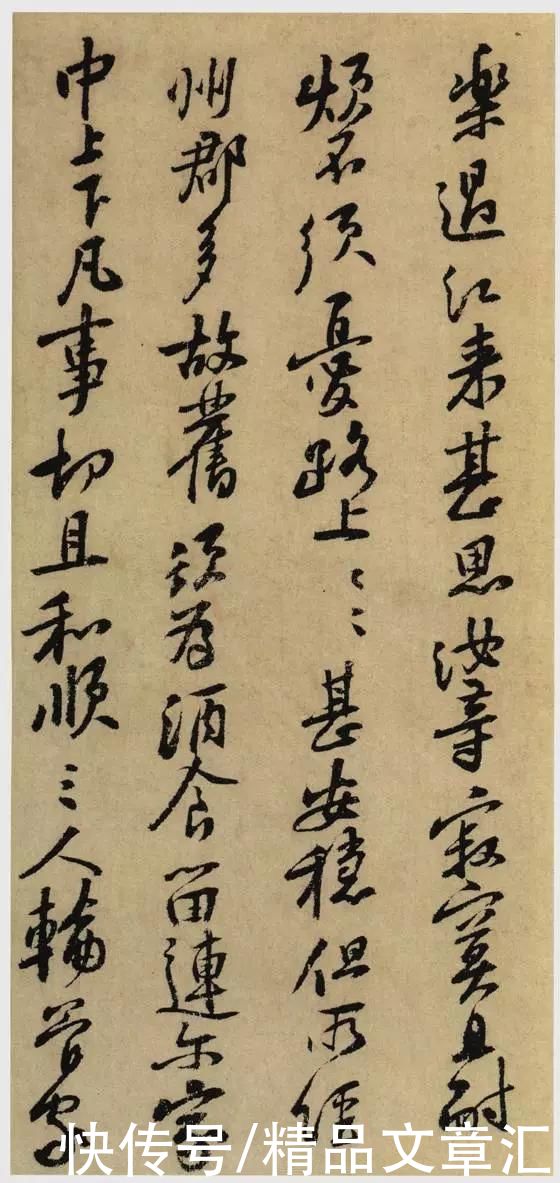 樂過江来甚思汝等寂寞且耐
煩不須憂路上〻〻甚安穩但所經
州郡多故舊須為酒食留連尔家
中上下凡事切且和順三人輪管家
快传号/精品文章汇